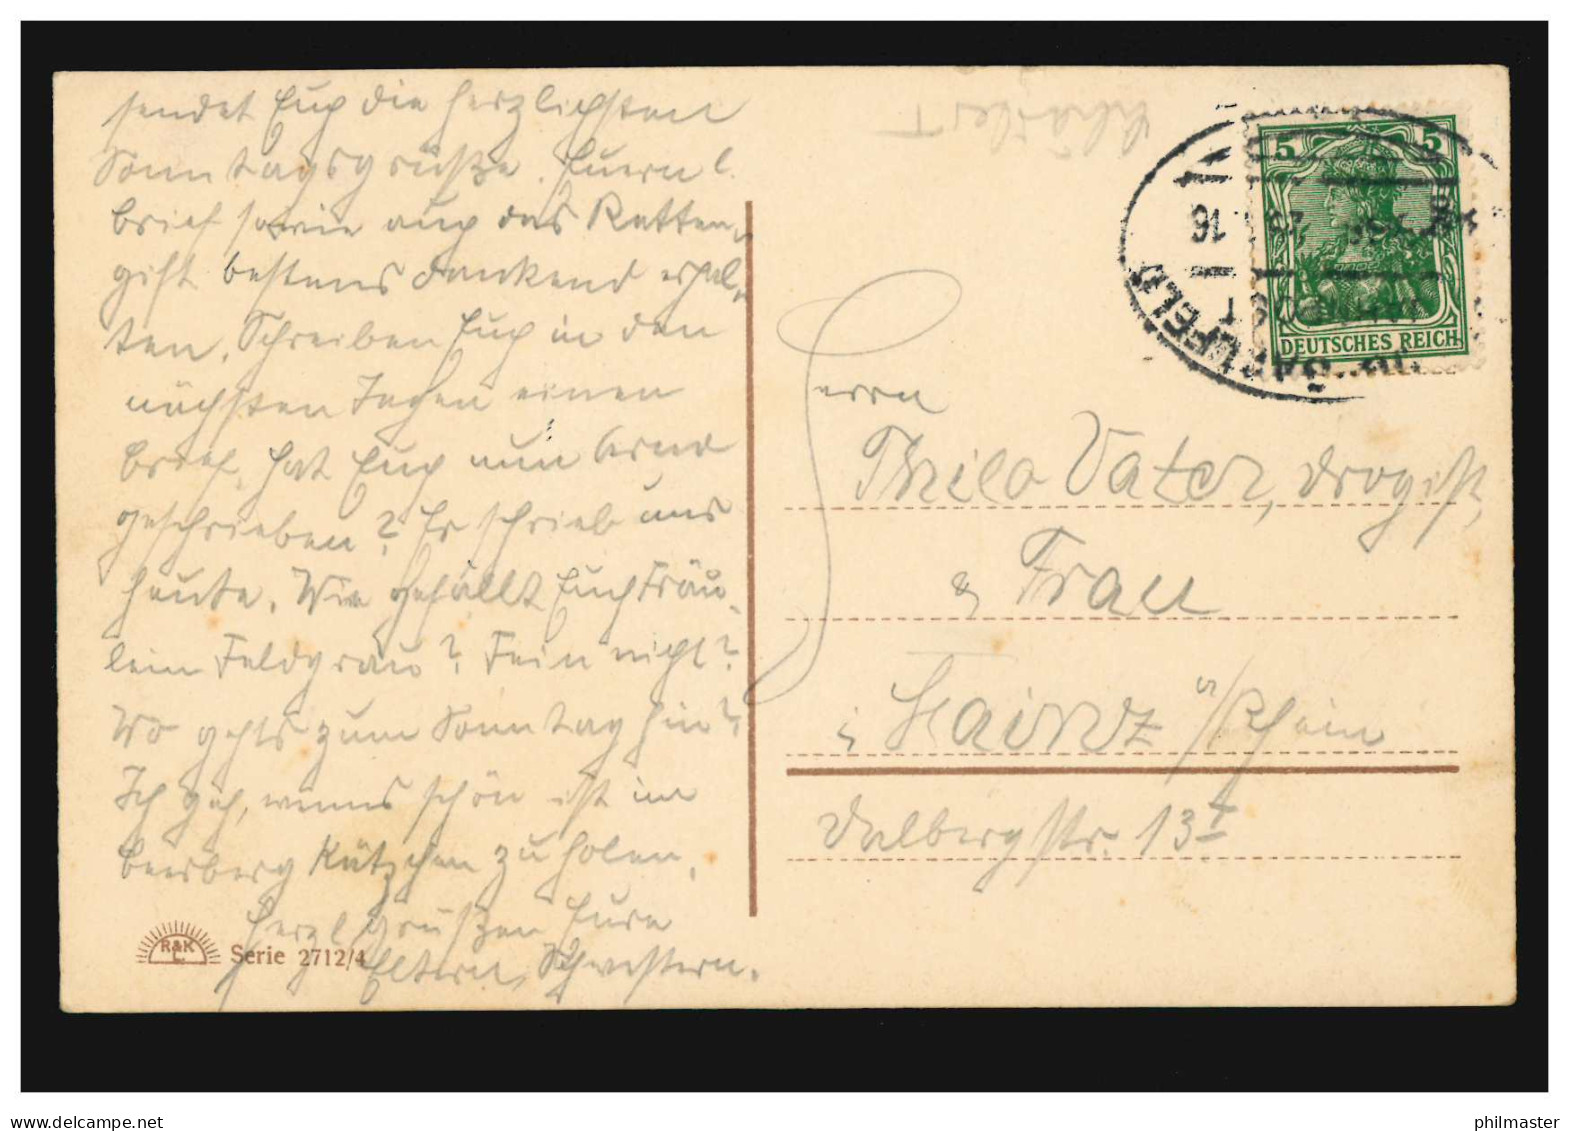 sendet Euch die herzlichsten
Sonntagsgrüße. Euern l.
Brief sowie auch das Ratten-
gift bestens dankend erhal-
ten. Schreiben Euch in den
nächsten Tagen einen
Brief. Hat Euch nun
geschrieben? Er schrieb uns
heute. Wie gefällt Euch Fräu-
lein Feldgrau? Fein nicht?
Wo gehts zum Sonntag hin?
Ich geh, wenns schön ist im
Beerberg Kätzchen zu holen.
Herzl Grüßen Eure
Eltern, Schwestern.
R&K
L.
Serie 2712/4
5 5
DEUTSCHES REICH
16
SAALFELD
Herrn
Thilo Vater, Drogist,
& Frau
i Mainz a/Rhein
Dalbergstr. 13 I
delcampe.net
philmaster